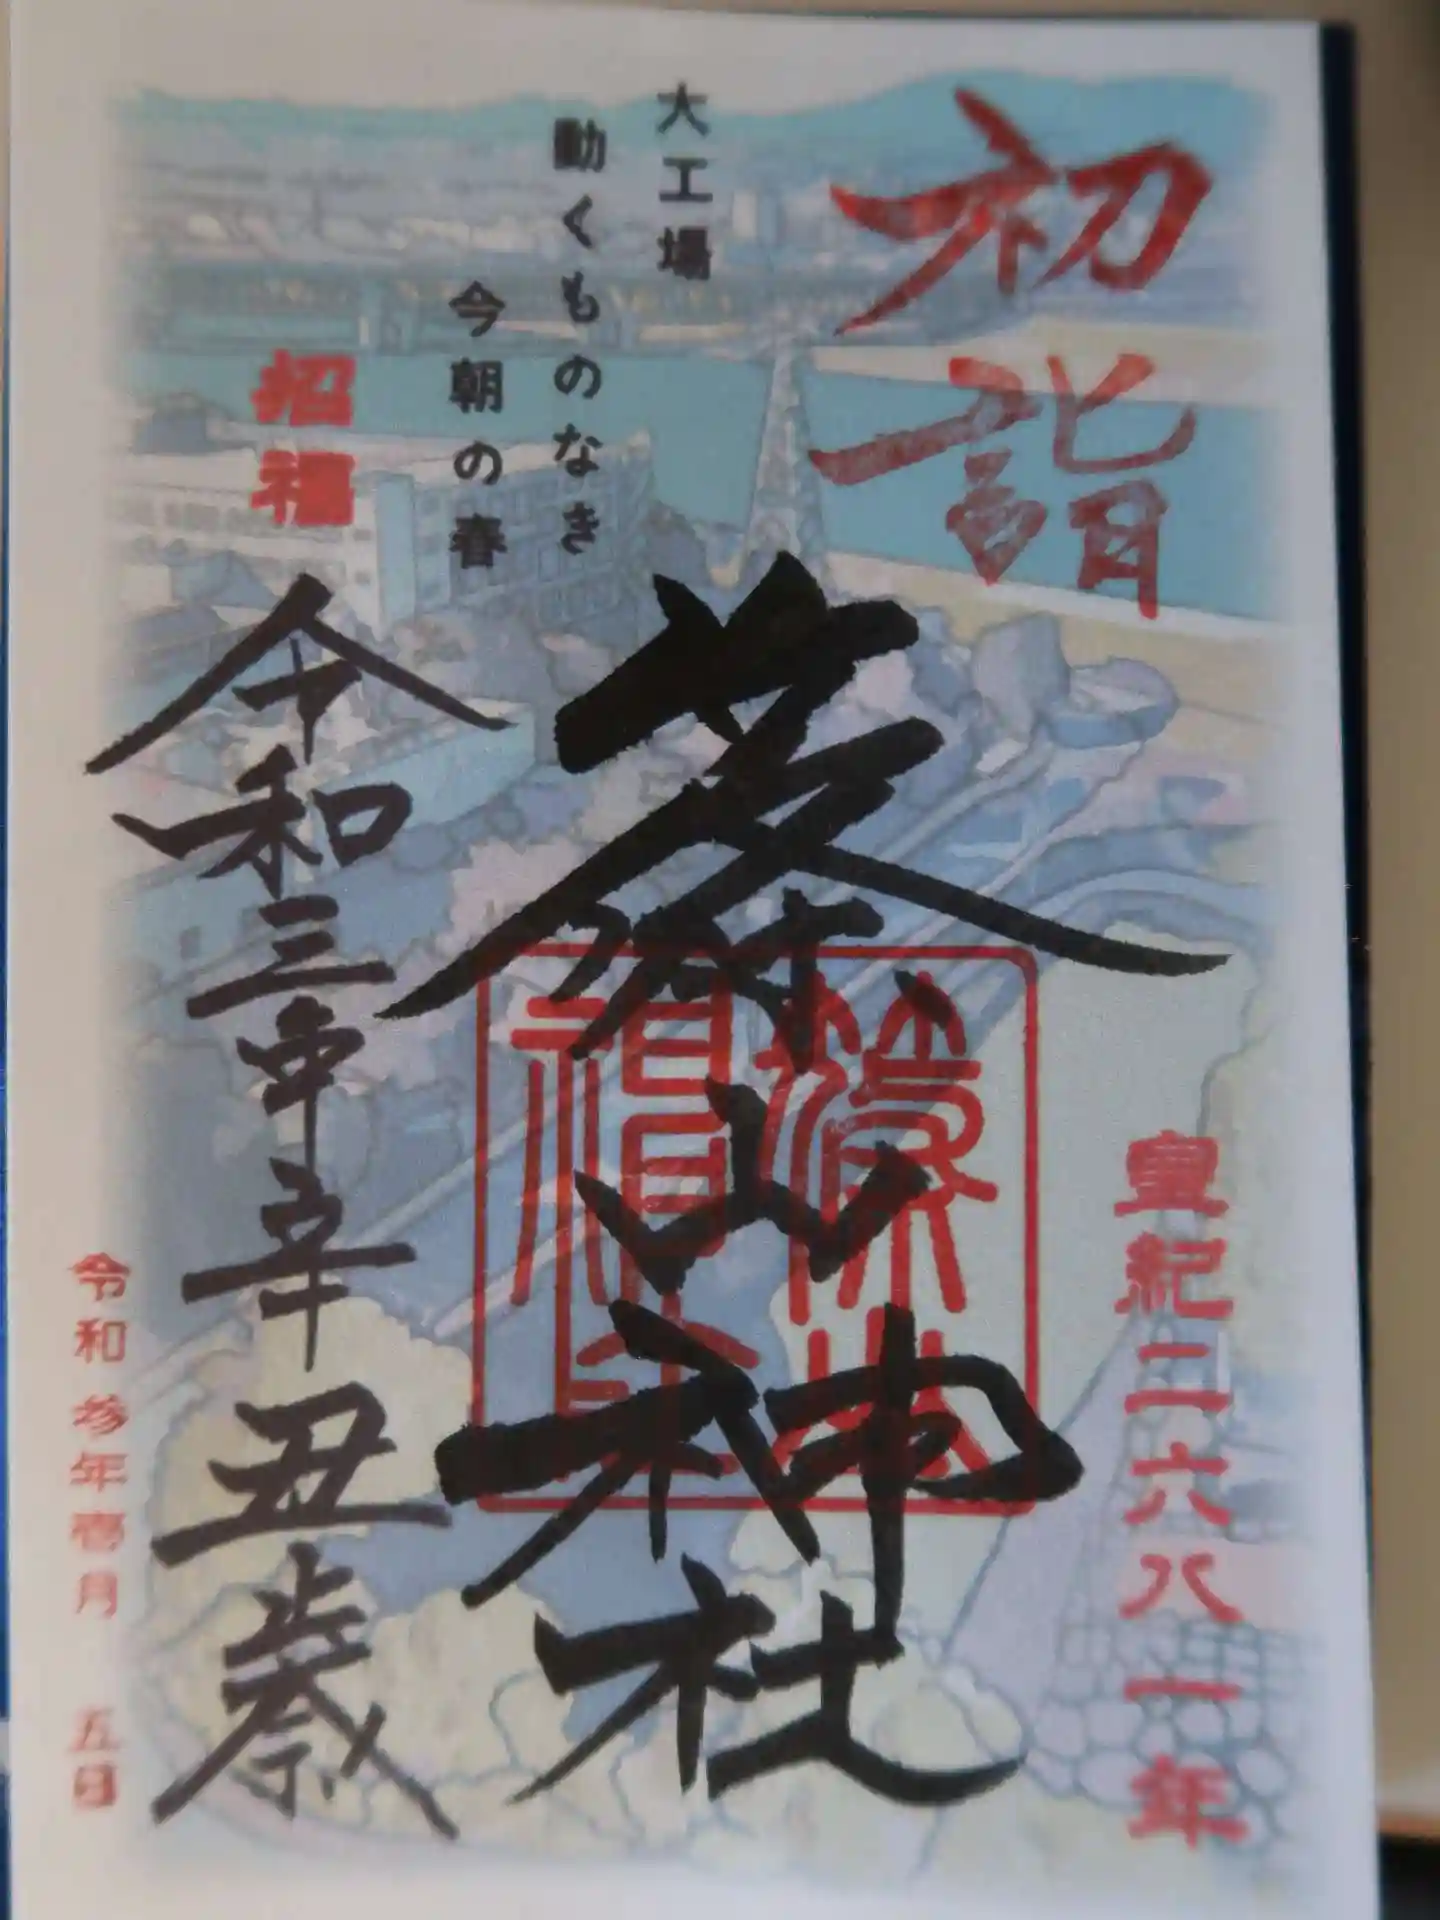 初詣
皇紀二六八一年
大工場
動くものなき
今朝の春
篠山神社
篠山
神社
招福
令和三年辛丑歳
令和参年壱月 五日